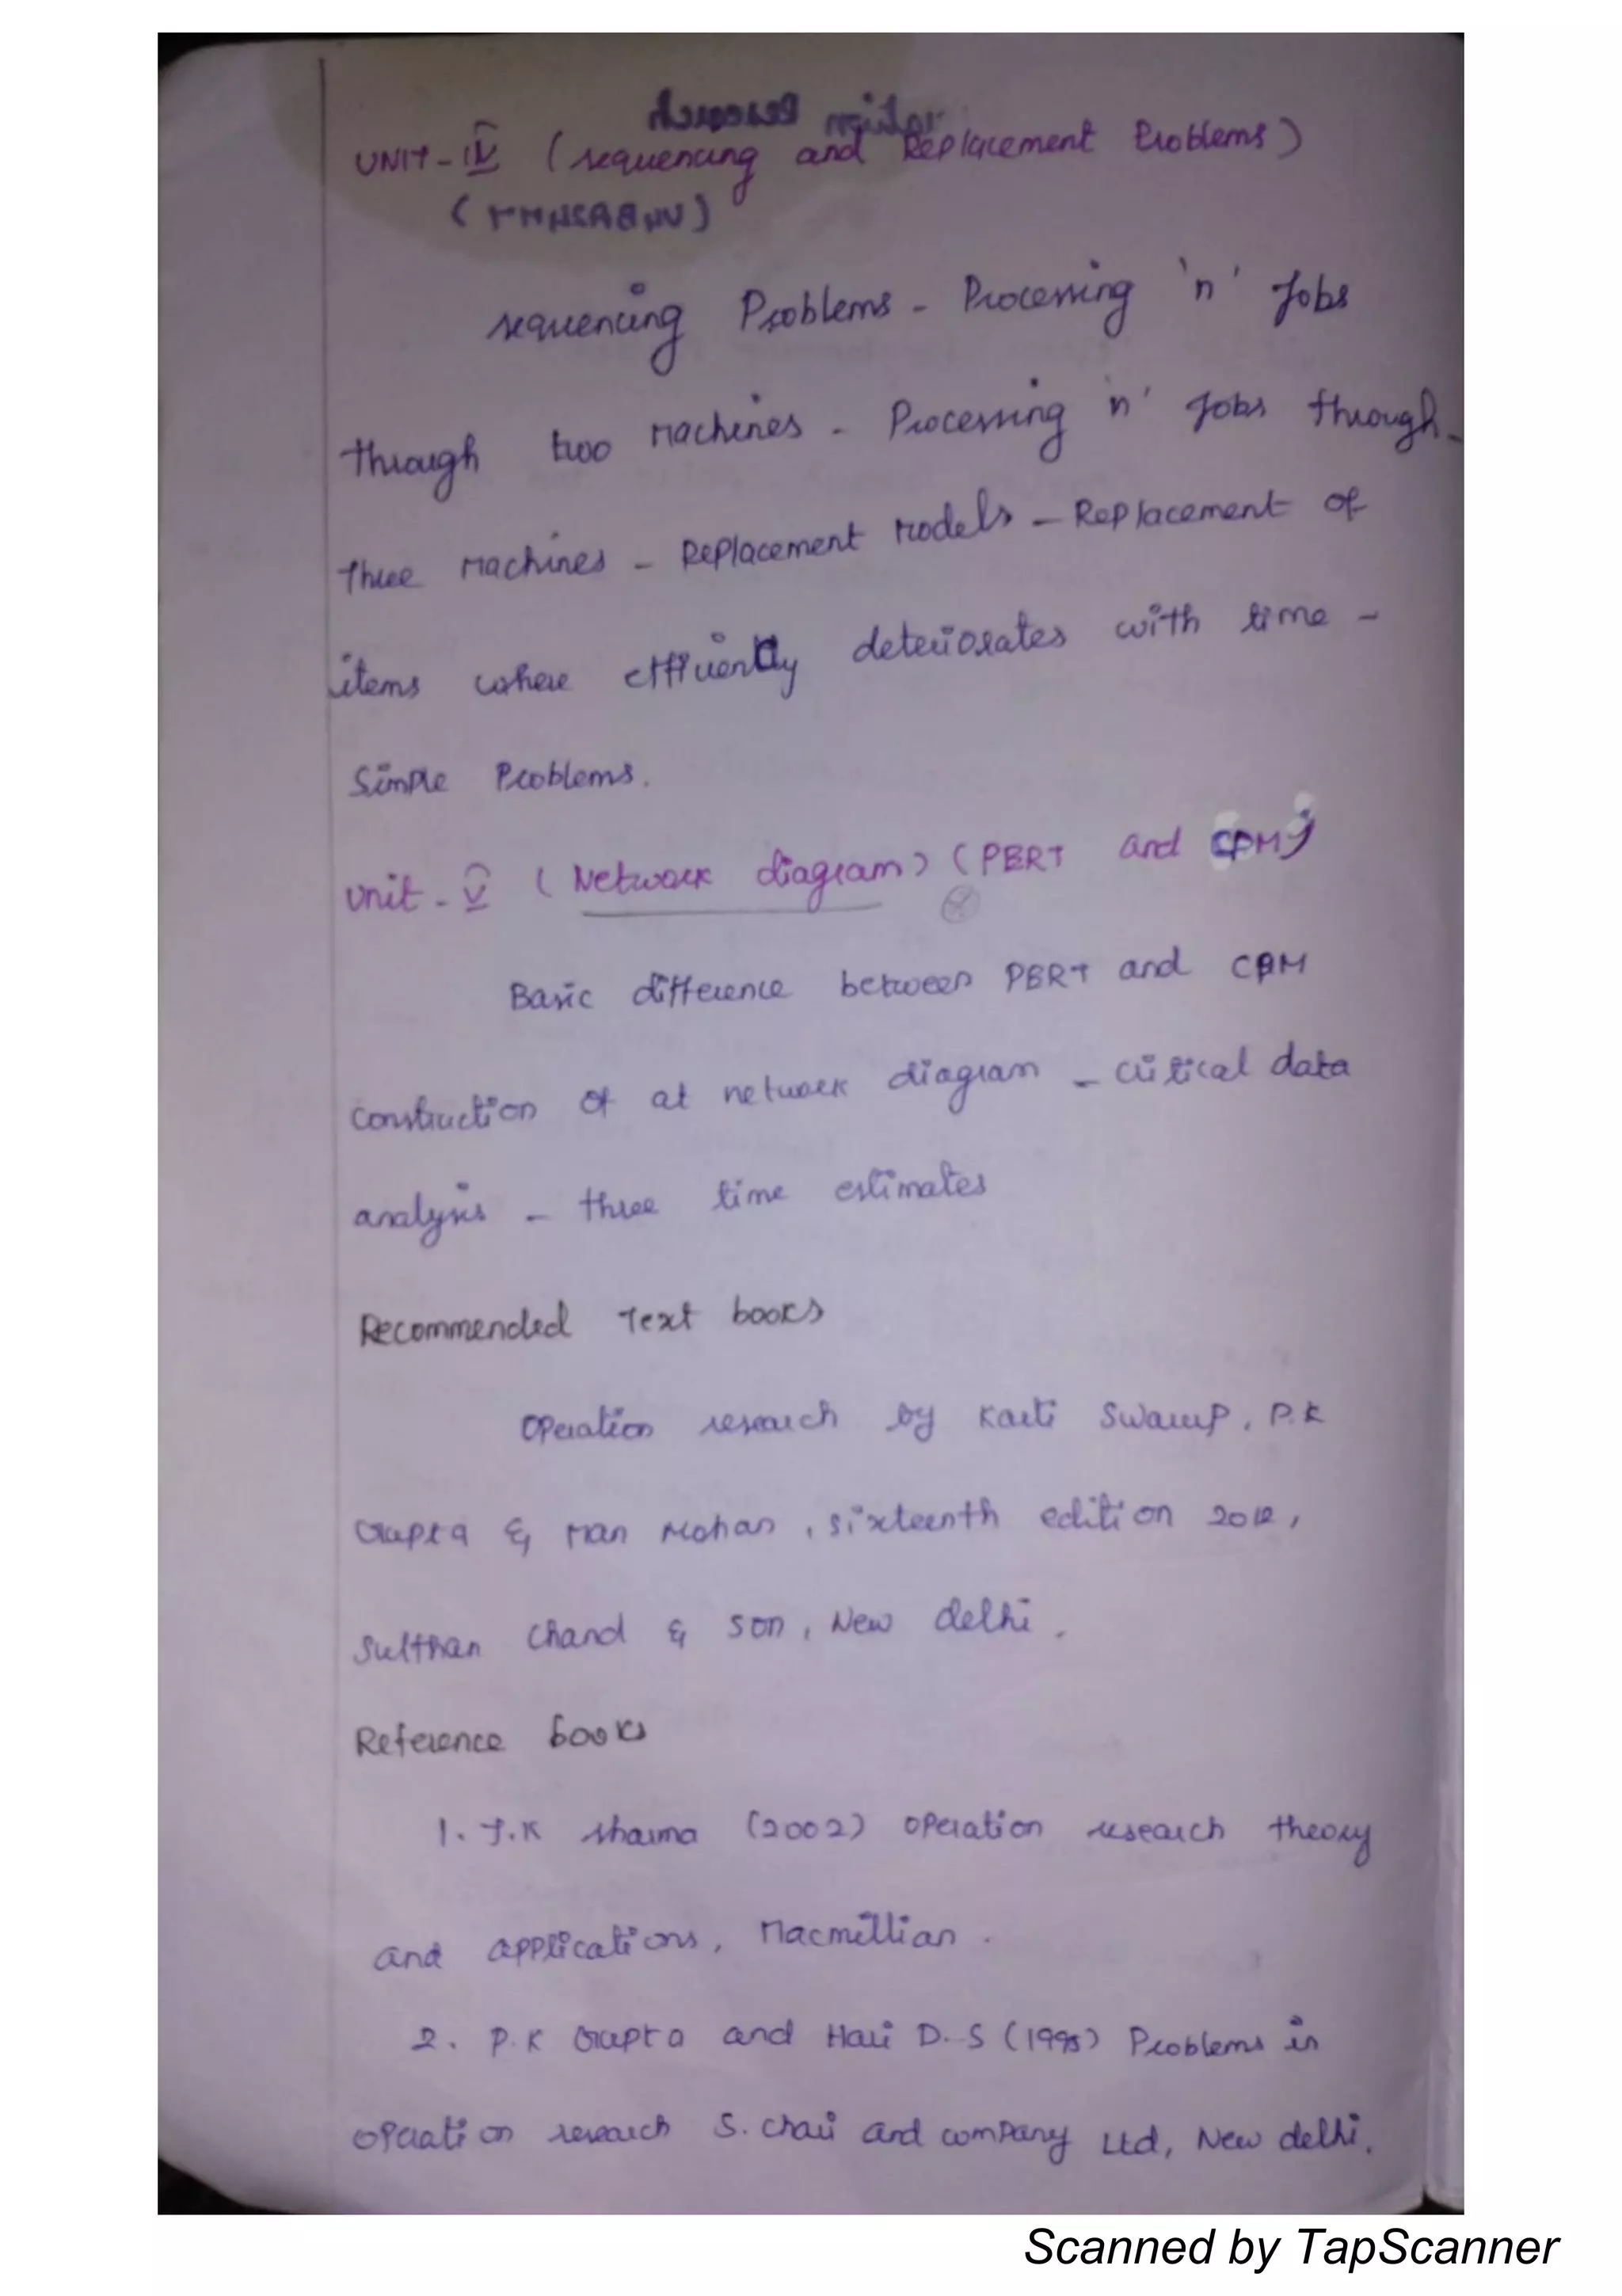 UNIT-IV (sequencing and Replacement Problems)
sequencing Problems - Processing 'n' Jobs
through two Machines - Processing 'n' Jobs through-
Three Machines - Replacement Models - Replacement of
items where efficiency deteriorates with time -
Simple Problems.
Unit-V (Network diagram) (PERT and CPM)
Basic difference between PERT and CPM
Construction of at network diagram - Critical data
analysis - three time estimates
Recommended Text books
Operation research by Karti Swarup, P.K
Gupta & Man Mohan, sixteenth edition 2012,
Sulthan Chand & son, New delhi.
Reference books
1. J.K sharma (2002) Operation research theory
and applications, Macmillian.
2. P.K Gupta and Hari D.S (1995) Problems in
operation research S. Chari and company Ltd, New delhi.
Scanned by TapScanner